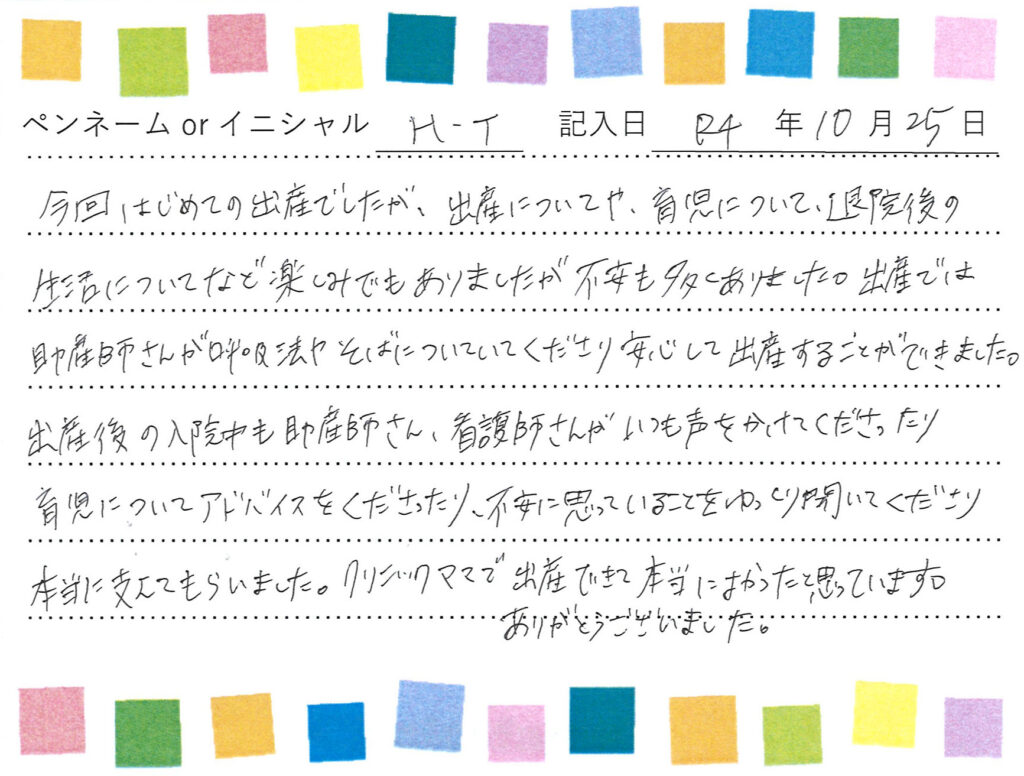 ペンネーム or イニシャル H-T 記入日 R4 年 10 月 25 日
今回はじめての出産でしたが、出産についてや、育児について、退院後の
生活についてなど楽しみでもありましたが不安も多くありました。出産では
助産師さんが呼吸法やそばについていてくださり安心して出産することができました。
出産後の入院中も助産師さん、看護師さんがいつも声をかけてくださったり
育児についてアドバイスをくださったり、不安に思っていることをゆっくり聞いてくださり
本当に支えてもらいました。クリニックママで出産できて本当によかったと思っています。
ありがとうございました。